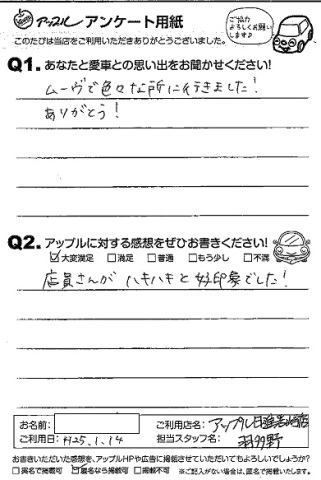 アップル アンケート用紙
このたびは当店をご利用いただきありがとうございました。
ご協力
よろしくお願い
します♪
Q1. あなたと愛車との思い出をお聞かせください!
ムーヴで色々な所に行きました!
ありがとう!
Q2. アップルに対する感想をぜひお書きください!
☑大変満足 □満足 □普通 □もう少し □不満
店員さんが ハキハキと 好印象でした!
お名前:
ご利用店名: アップル日進
ご利用日: H25.1.14
担当スタッフ名: 羽多野
お書きいただいた感想を、アップルHPや広告に掲載させていただいてもよろしいでしょうか?
□実名で掲載可 ☑匿名なら掲載可 □掲載不可 ※ご記入がない場合は、匿名で掲載いたします。